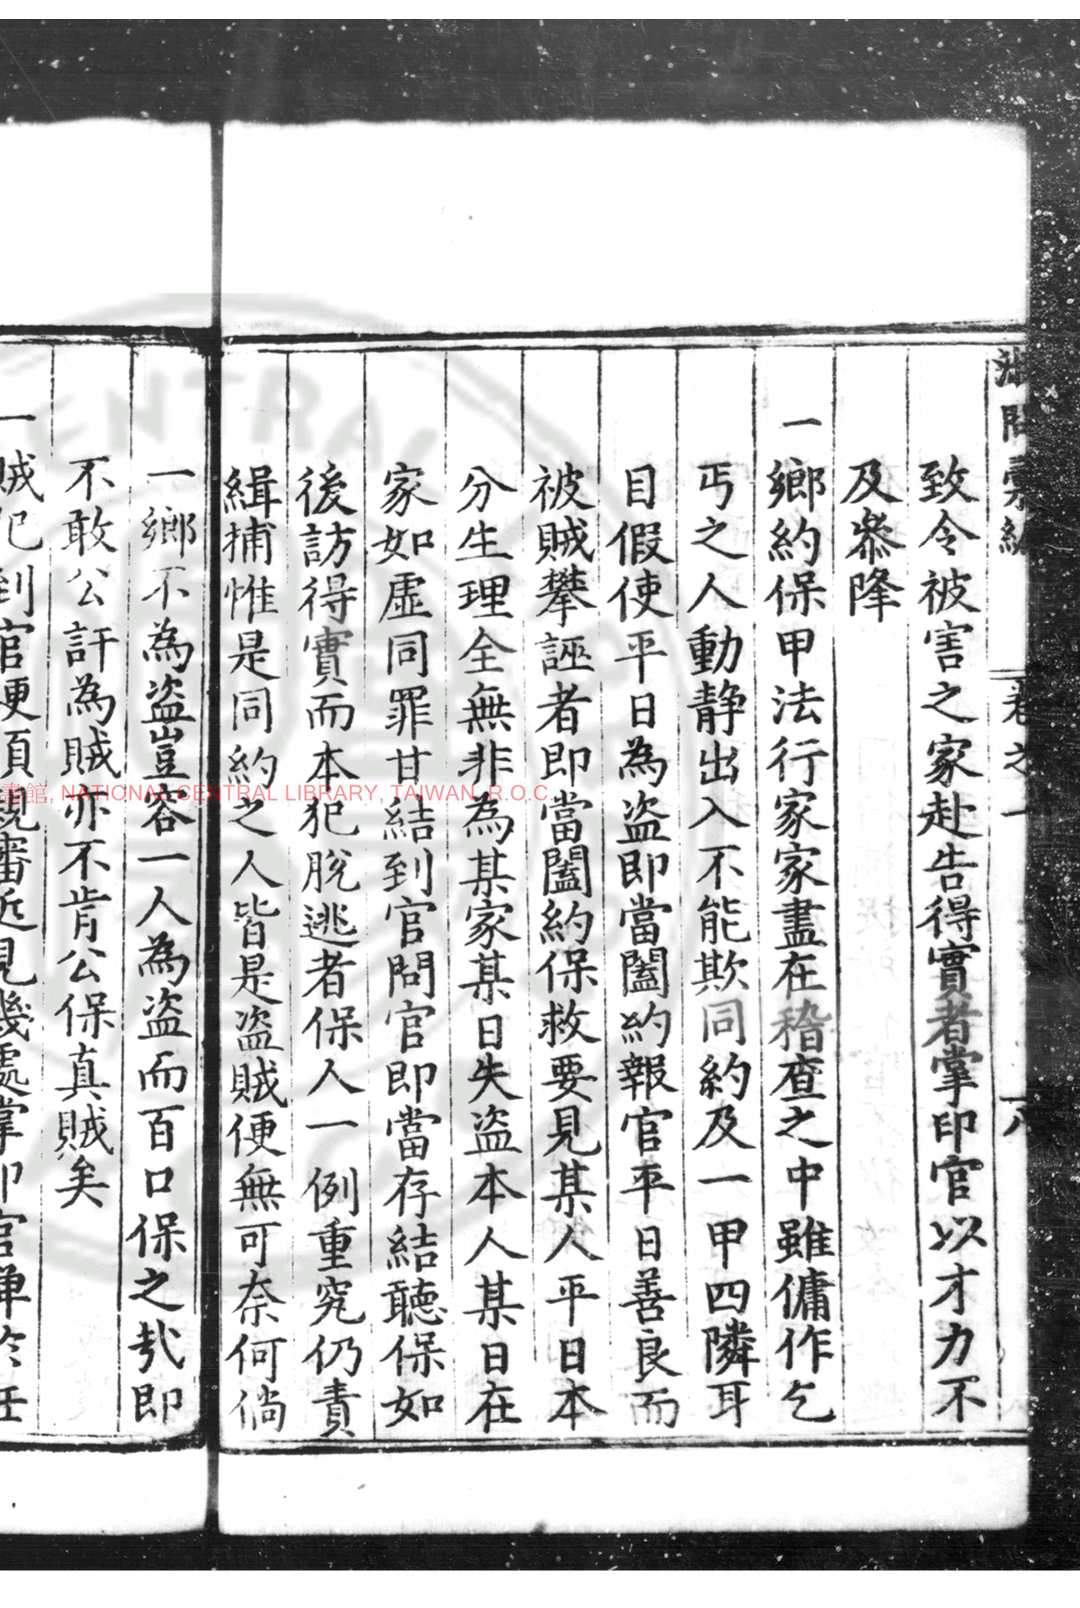 卷之一
致令被害之家赴告得實者掌印官以才力不
及叅降
一鄉約保甲法行家家盡在稽查之中雖傭作乞
丐之人動静出入不能欺同約及一甲四隣耳
目假使平日為盗即當闔約報官平日善良而
被賊攀誣者即當闔約保救要見某人平日本
分生理全無非為某家某日失盗本人某日在
家如虛同罪甘結到官問官即當存結聽保如
後訪得實而本犯脫逃者保人一例重究仍責
緝捕惟是同約之人皆是盗賊便無可奈何倘
一鄉不為盗豈容一人為盗而百口保之㢤即
不敢公訐為賊亦不肯公保真賊矣
一賊犯到官便須親審近見幾處掌印官単於任
書館, NATIONAL CENTRAL LIBRARY, TAIWAN, R.O.C